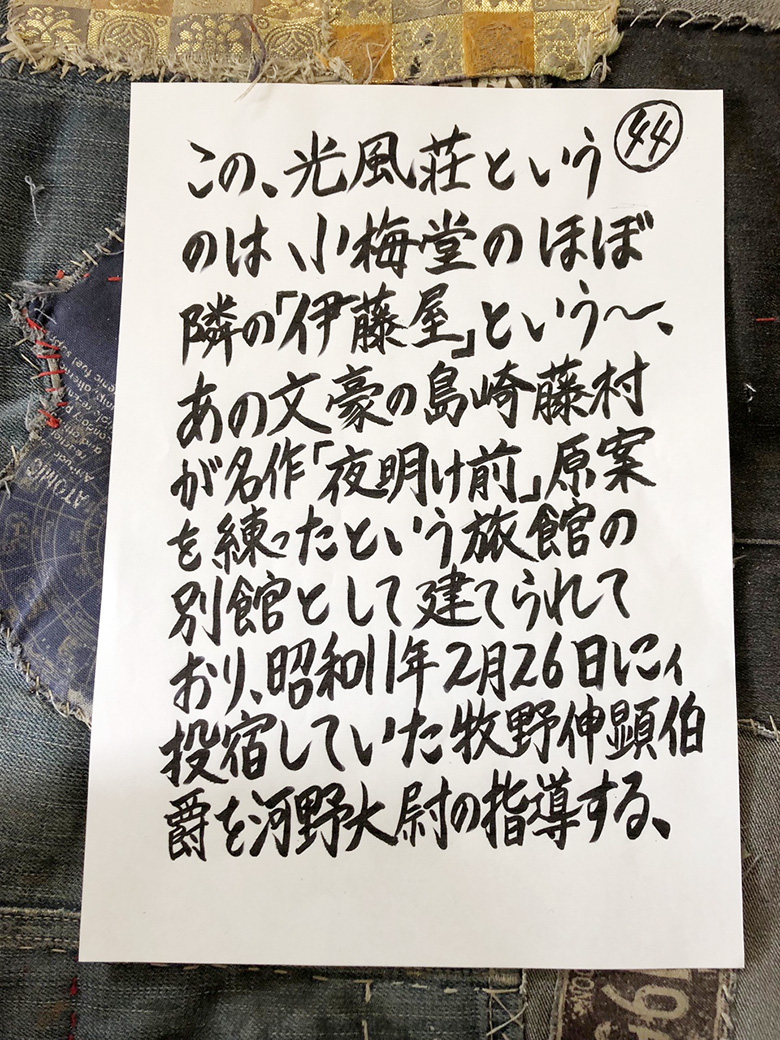 44
この、光風荘という
のは、小梅堂のほぼ
隣の「伊藤屋」という〜、
あの文豪の島崎藤村
が名作「夜明け前」原案
を練ったという旅館の
別館として建てられて
おり、昭和11年2月26日にィ
投宿していた牧野伸顕伯
爵を河野大尉の指導する、
ATOMIC